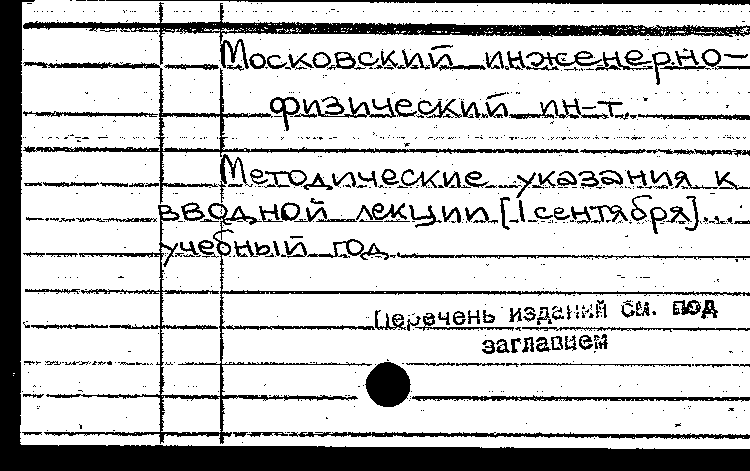 Московский инженерно-
физический ин-т.
Методические указания к
вводной лекции [1 сентября]...
учебный год.
Перечень изданий см. под
заглавием